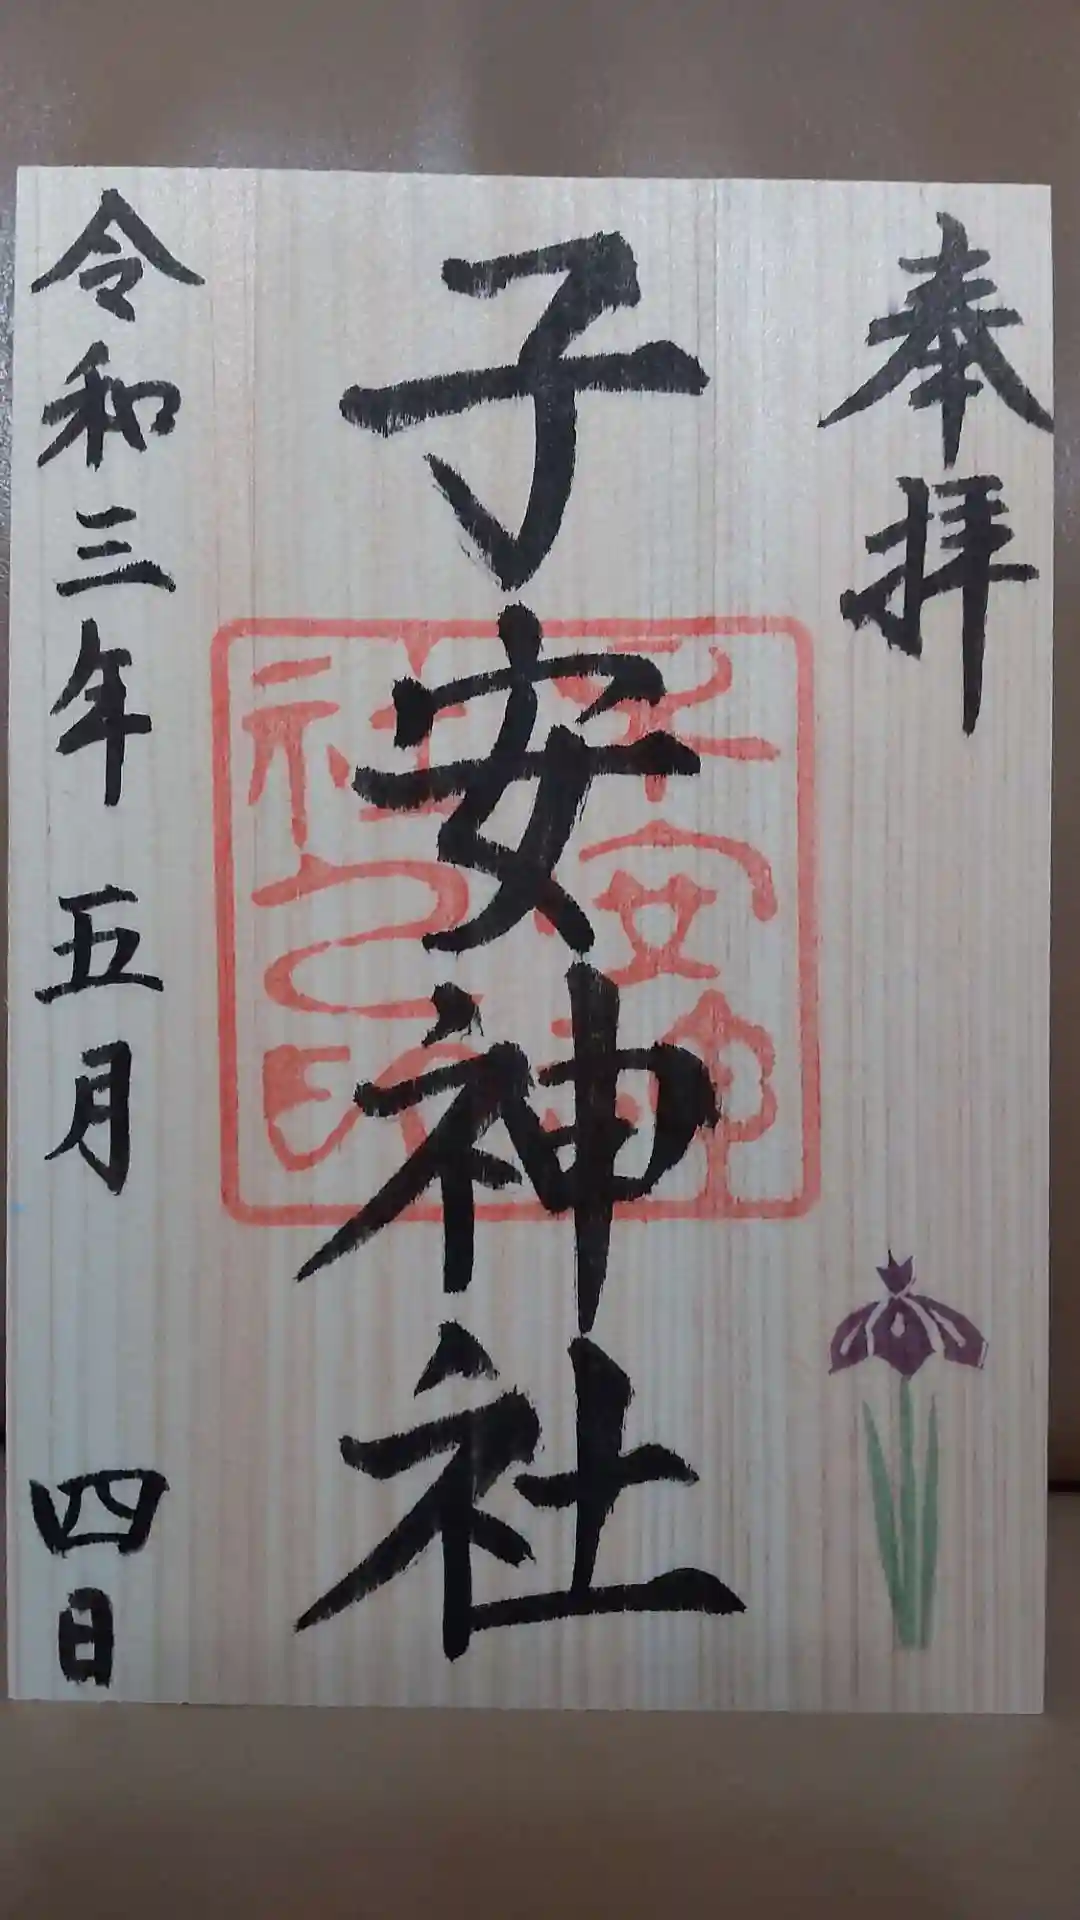 奉拝
子安神社
子安神
社之印
令和三年 五月 四日